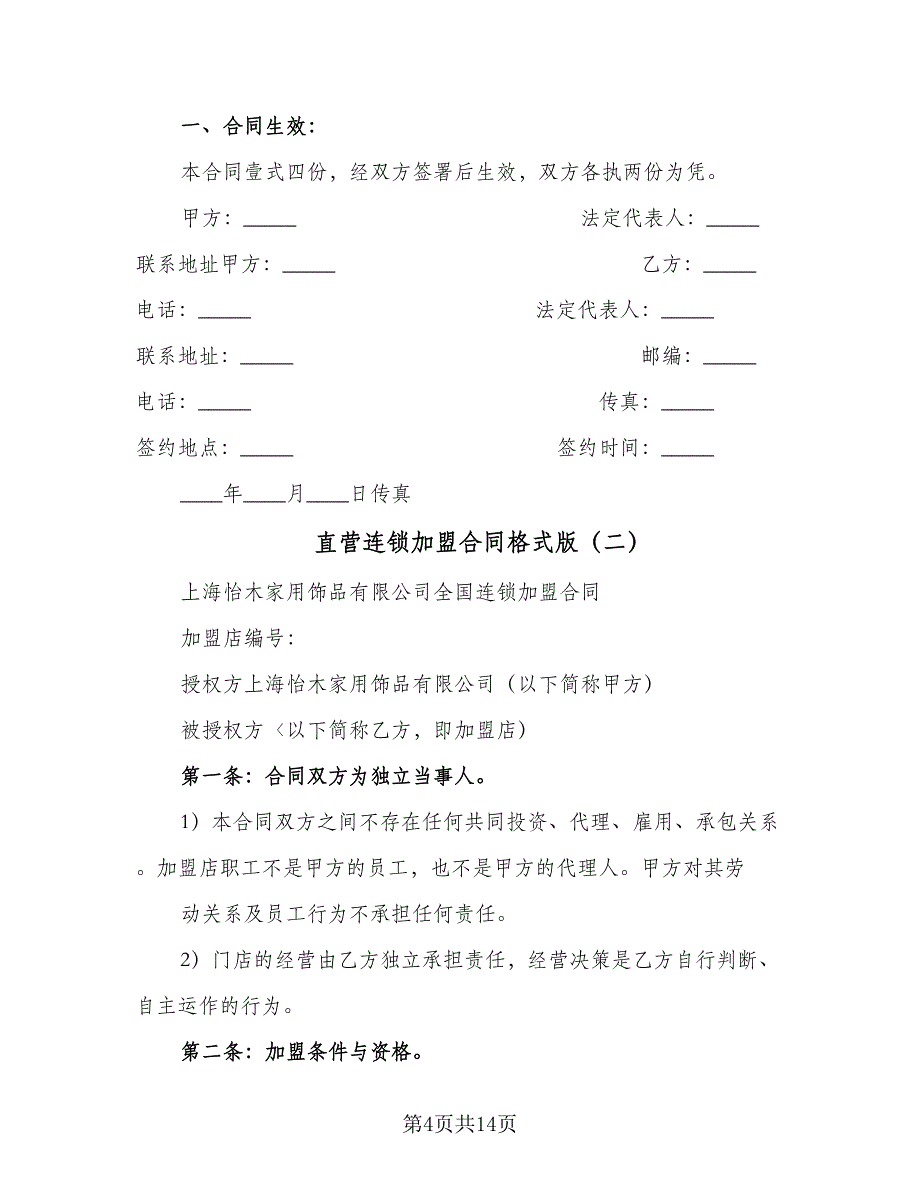 一、合同生效：
本合同壹式四份，经双方签署后生效，双方各执两份为凭。
甲方：_____ 法定代表人：_____
联系地址甲方：_____ 乙方：_____
电话：_____ 法定代表人：_____
联系地址：_____ 邮编：_____
电话：_____ 传真：_____
签约地点：_____ 签约时间：_____
____年____月____日传真
直营连锁加盟合同格式版（二）
上海怡木家用饰品有限公司全国连锁加盟合同
加盟店编号：
授权方上海怡木家用饰品有限公司（以下简称甲方）
被授权方〈以下简称乙方，即加盟店）
第一条：合同双方为独立当事人。
1）本合同双方之间不存在任何共同投资、代理、雇用、承包关系
。加盟店职工不是甲方的员工，也不是甲方的代理人。甲方对其劳
动关系及员工行为不承担任何责任。
2）门店的经营由乙方独立承担责任，经营决策是乙方自行判断、
自主运作的行为。
第二条：加盟条件与资格。
第4页共14页